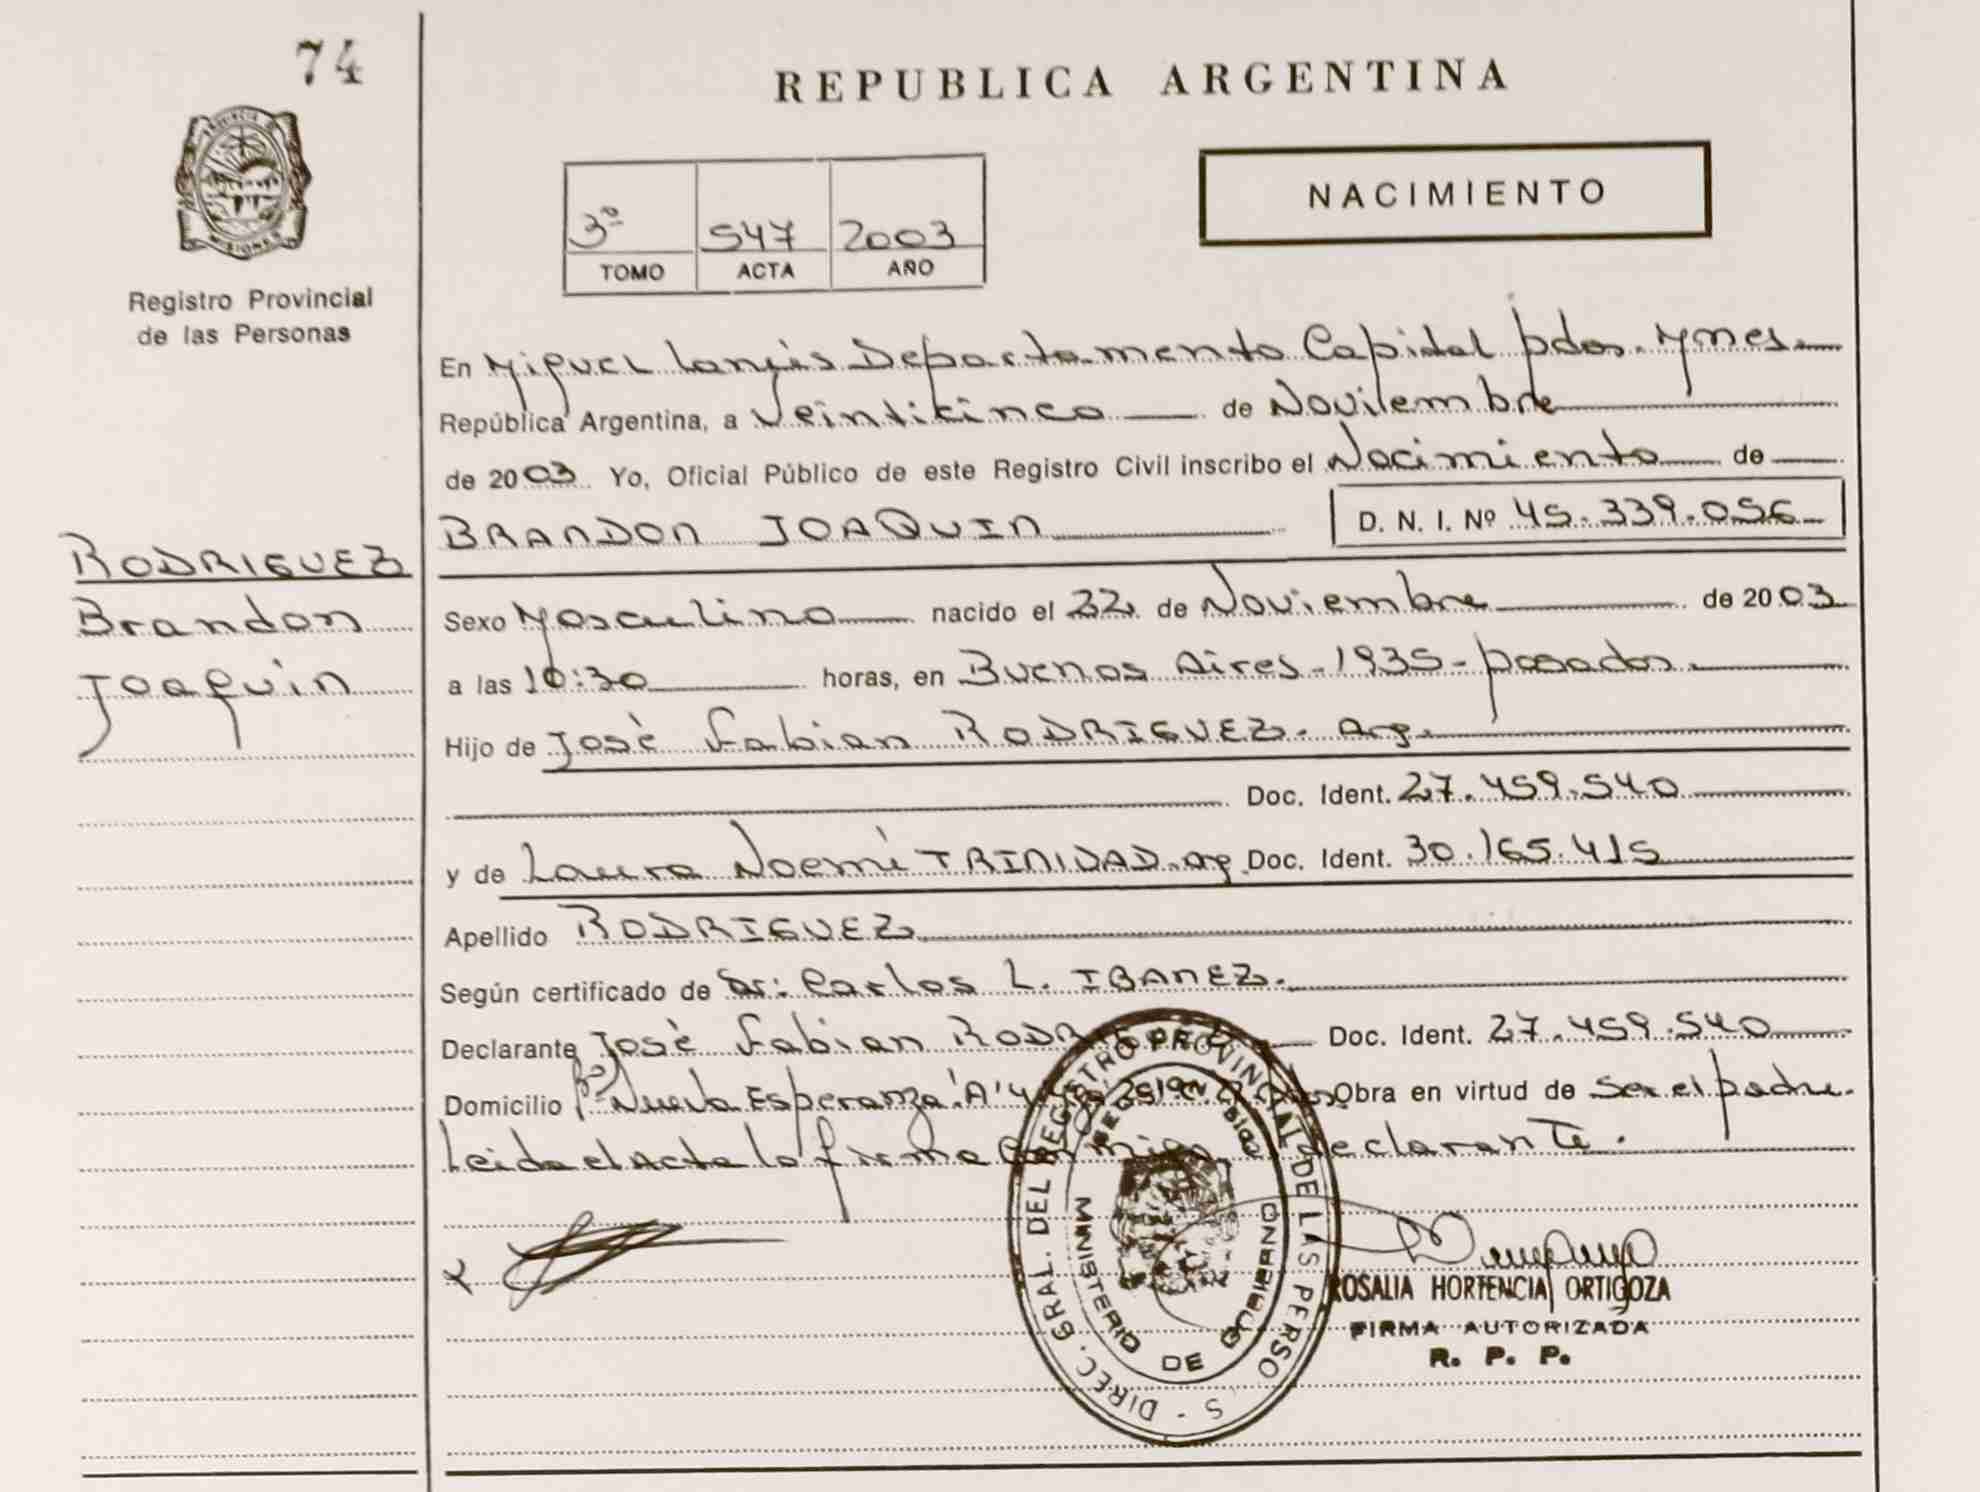 74
REPUBLICA ARGENTINA
NACIMIENTO
3º 547 2003
TOMO ACTA AÑO
PROVINCIA DE MISIONES
Registro Provincial
de las Personas
En Miguel Lanús Departamento Capital pdas. Mnes.
República Argentina, a Veinticinco de Noviembre
de 2003 Yo, Oficial Público de este Registro Civil inscribo el Nacimiento de
BRANDON JOAQUIN D. N. I. Nº 45.339.056
RODRIGUEZ
Brandon
Joaquin
Sexo Masculino nacido el 22 de Noviembre de 2003
a las 10:30 horas, en Buenos Aires - 1935 - posadas
Hijo de José Fabian RODRIGUEZ. Arg.
Doc. Ident. 27.459.540
y de Laura Noemi TRINIDAD. Arg. Doc. Ident. 30.165.415
Apellido RODRIGUEZ
Según certificado de Dr: Carlos L. IBANEZ.
Declarante José Fabian RODRIGUEZ Doc. Ident. 27.459.540
Domicilio Bº Nueva Esperanza "A" Obra en virtud de ser el padre.
Leida el Acta la firma Conmigo el declarante.
DIREC. GRAL. DEL REGISTRO PROVINCIAL DE LAS PERSO S -
MINISTERIO DE GOBIERNO
ROSALIA HORTENCIA ORTIGOZA
FIRMA AUTORIZADA
R. P. P.